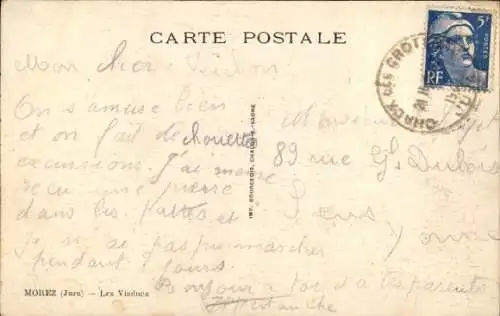 CARTE POSTALE
5F
RF
Mon cher
On s'amuse bien
et on fait de chouettes
excursions. J'ai même
reçu une pierre
dans les pattes et
je n'ai pas pu marcher
pendant jours.
Bonjour a toi et a tes parents
Monsieur
89 rue G. Dubois
Sens
Yonne
IMP. BOURGEOIS, CHALON-S-SAONE
MOREZ (Jura) - Les Viaducs